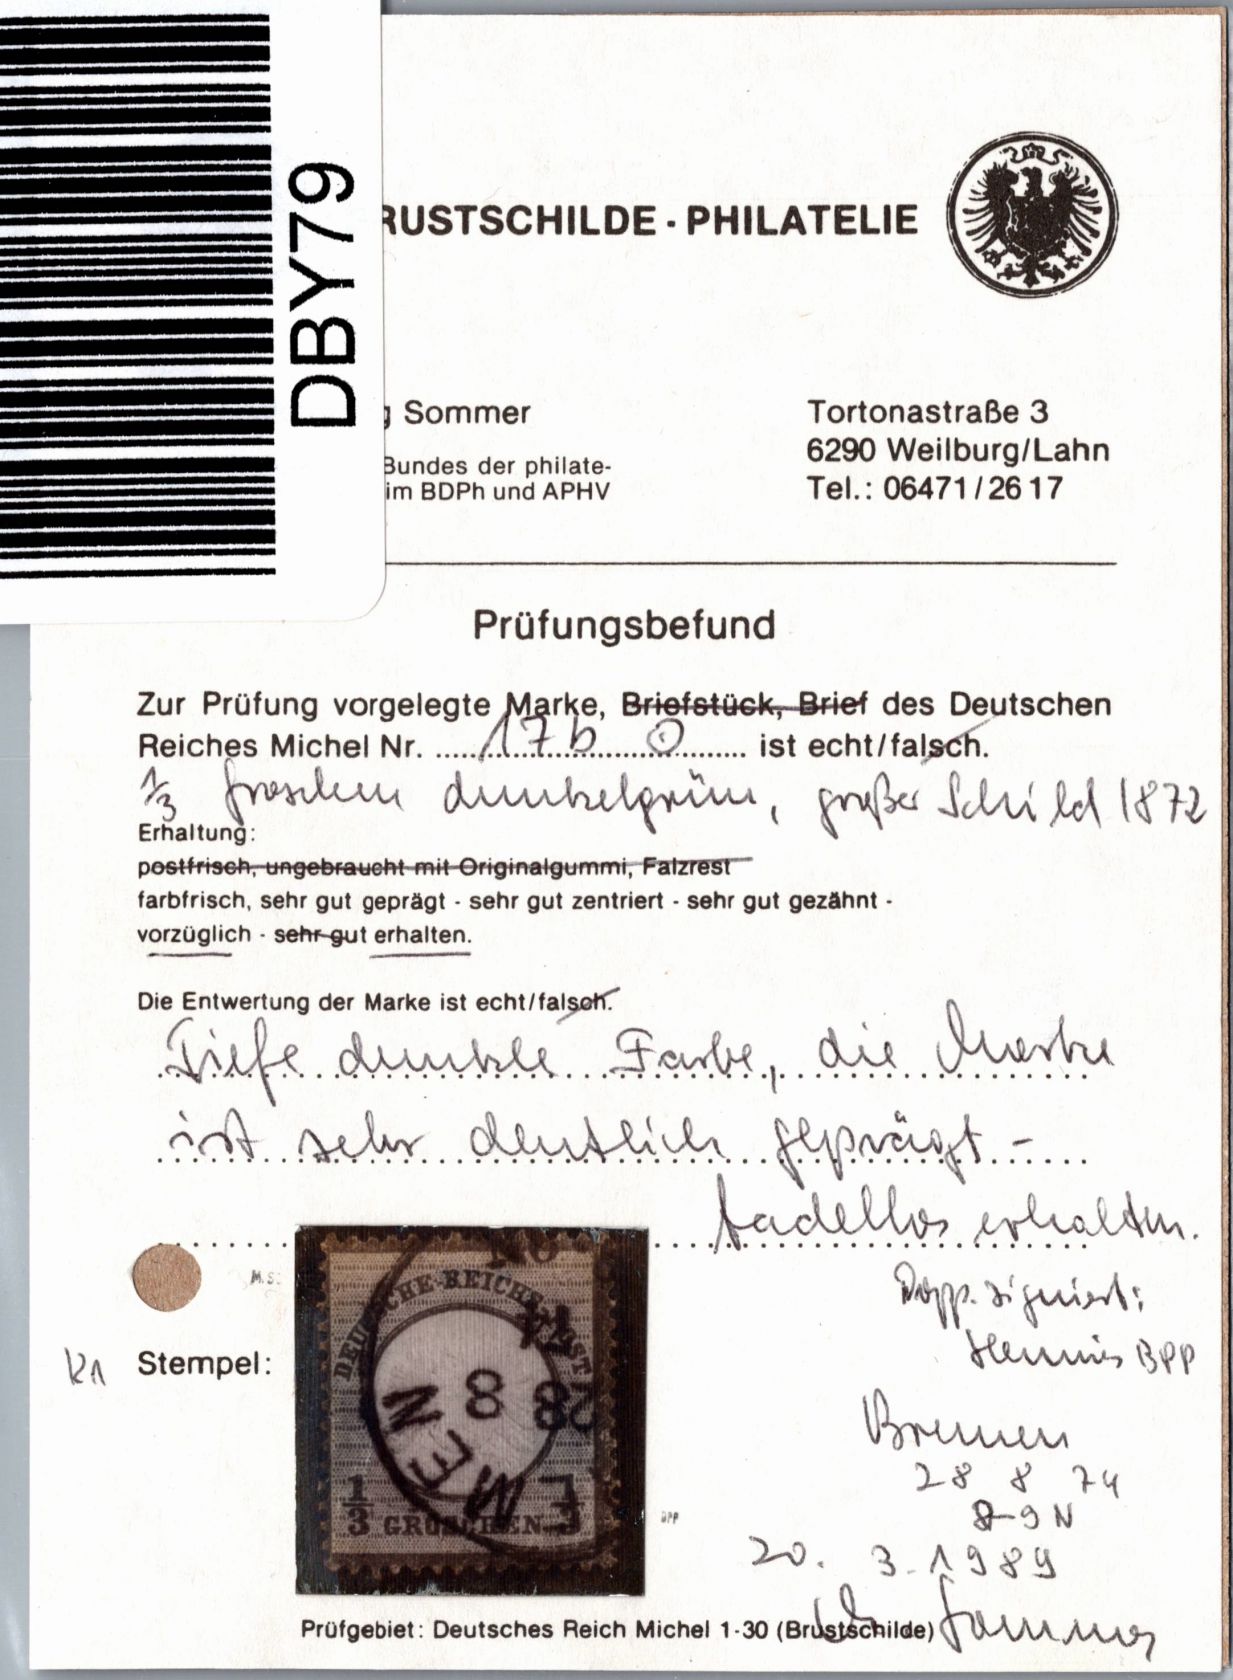 DBY79
RUSTSCHILDE - PHILATELIE
g Sommer
Bundes der philate-
im BDPh und APHV
Tortonastraße 3
6290 Weilburg/Lahn
Tel.: 06471/2617
Prüfungsbefund
Zur Prüfung vorgelegte Marke, Briefstück, Brief des Deutschen
Reiches Michel Nr. 17b ⊙ ist echt/falsch.
1/3 Groschen dunkelgrün, großer Schild 1872
Erhaltung:
postfrisch, ungebraucht mit Originalgummi, Falzrest
farbfrisch, sehr gut geprägt - sehr gut zentriert - sehr gut gezähnt -
vorzüglich - sehr gut erhalten.
Die Entwertung der Marke ist echt/falsch.
Tiefe dunkle Farbe, die Marke
ist sehr deutlich geprägt -
tadellos erhalten.
Dopp. signiert:
Hennies BPP
K1 Stempel:
DEUTSCHE REICHS-POST
28 8
MEN
1/3 GROSCHEN 1/3
Bremen
28 8 74
8-9 N
20. 3. 1989
Sommer
Prüfgebiet: Deutsches Reich Michel 1-30 (Brustschilde)